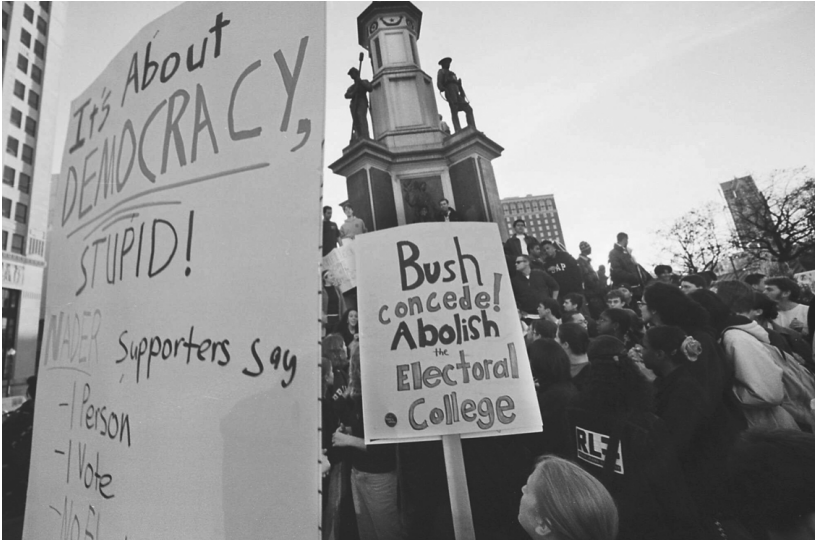 It's About
DEMOCRACY,
STUPID!
NADER Supporters Say
- 1 Person
- 1 Vote
Bush
concede!
Abolish
the
Electoral
College